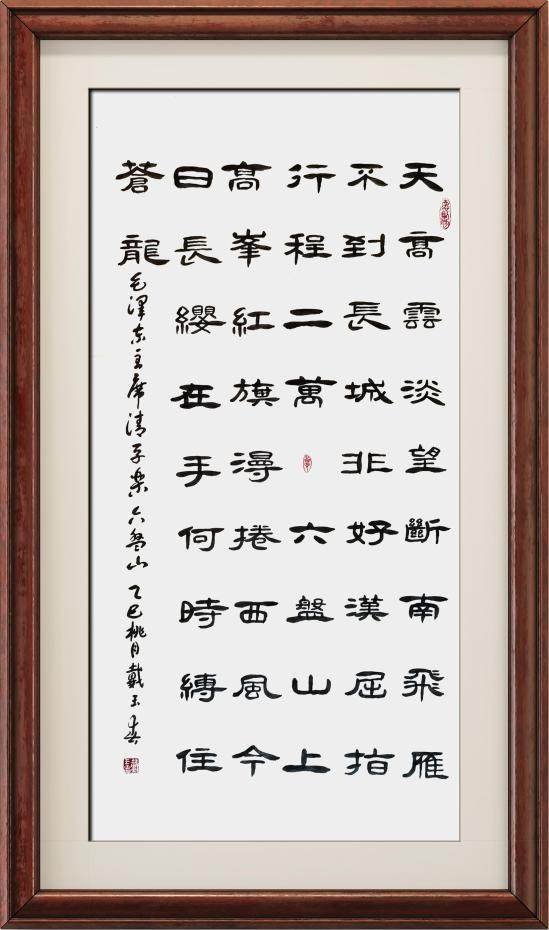 天高雲淡望斷南飛雁
不到長城非好漢屈指
行程二萬六盤山上
高峯紅旗漫捲西風今
日長纓在手何時縛住
蒼龍
毛澤东主席清平楽六盘山 乙巳桃月戴玉春